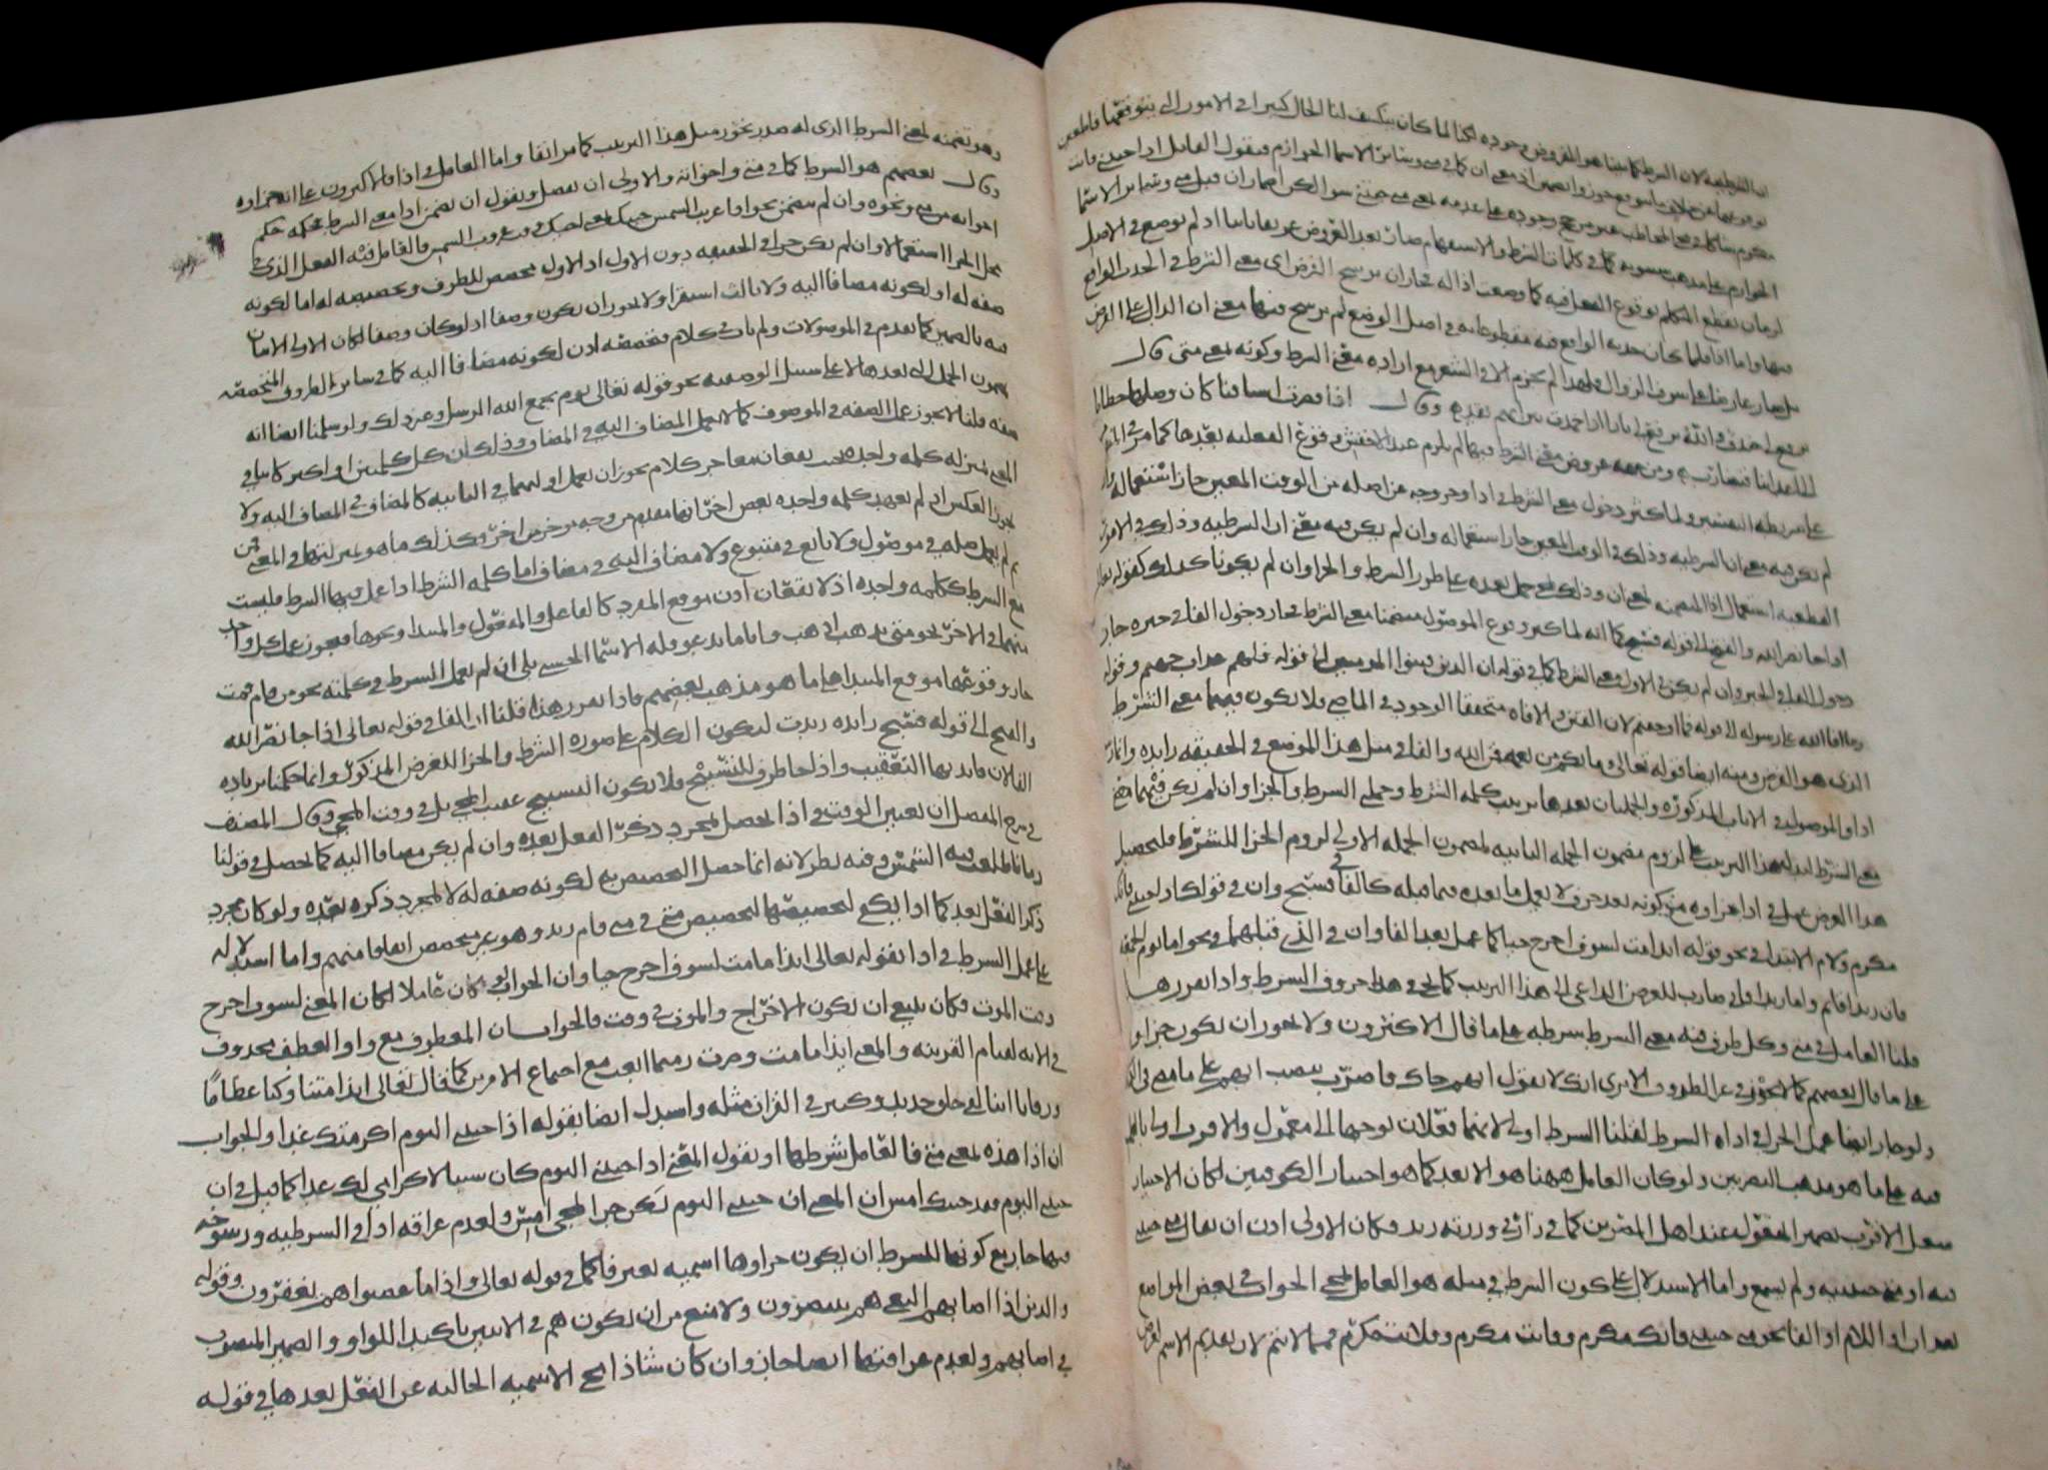 ان الشرطية لان الشرط كما بينا هو المفروض وجوده لكنا لما كان ينكشف لنا الحال كثيرا في الامور التي نتوقعها قاطعين
بوقوعها على خلاف ما نتوقعه جوزوا تضمين اذا معنى ان كما في متى وسائر الاسما الجوازم فيقول القائل اذا جيتني فانت
مكرم شاكا في مجي المخاطب غير مرجح وجوده على عدمه بمعنى متى جيتني سوا لكن اضمار ان قبل متى وسائر الاسما
الجوازم على مذهب سيبويه كما في كلمات الشرط والاستفهام صار بعد العروض عريقا ثابتا اذ لم توضع في الاصل
لزمان يقطع المتكلم بوقوع الفعل فيه كما وضعت اذا له فجاز ان يرسخ الفرض اي معنى الشرط في الحدث الواقع
فيها واما اذا فلما كان حدثه الواقع فيه مقطوعا به في اصل الوضع لم يرسخ فيها معنى ان الدال على الفرض
بل صار عارضا على شرف الزوال فلهذا لم يجزم الا في الشعر مع ارادة معنى الشرط وكونه بمعنى متى قال
ترفع لي خندف والله يرفع لي نارا اذا خمدت نيرانهم تقد وقال اذا قصرت اسيافنا كان وصلها خطانا
الى اعدائنا فنضارب ومن جهة عروض معنى الشرط فيها لم يلزم عند الاخفش وقوع الفعلية بعدها كما مر في المنصوب
على شريطة التفسير ولما كثر دخول معنى الشرط في اذا وخروجه عن اصله من الوقت المعين جاز استعماله وان
لم يكن فيه معنى ان الشرطية وذلك في الوقت المعين جاز استعماله وان لم يكن فيه معنى ان الشرطية وذلك في الامور
القطعية استعمال اذا المتضمنة لمعنى ان وذلك بمجي جمل بعده على طرز الشرط والجزا وان لم يكونا كذلك كقوله تعالى
اذا جا نصر الله والفتح الى قوله فسبح كما انه لما كثر وقوع الموصول متضمنا معنى الشرط فجاز دخول الفا في خبره جاز
دخول الفا في الخبر وان لم يكن في الاول معنى الشرط كما في قوله ان الذين فتنوا المومنين الى قوله فلهم عذاب جهنم وقوله
وما افا الله على رسوله الى قوله فما اوجفتم لان الفتن والافاة متحققا الوجود في الماضي فلا يكون فيهما معنى الشرط
الذي هو الفرض ومنه ايضا قوله تعالى وما بكم من نعمة فمن الله والفا في مثل هذا الموضع في الحقيقة زايدة وانما
اذا والموصول في الايات المذكورة والجملتان بعدها ترتيب كلمة الشرط وجملتي الشرط والجزا وان لم يكن فيهما معنى
معنى الشرط ليدل هذا الترتيب على لزوم مضمون الجملة الثانية لمضمون الجملة الاولى لزوم الجزا للشرط فلتحصيل
هذا الغرض عمل في اذا جزاوه مع كونه بعد حرف لا يعمل ما بعده فيما قبله كالفا في فسبح وان في قولك اذا جيتني فانك
مكرم ولام الابتدا في نحو قوله ائذا مت لسوف اخرج حيا كما عمل بعد الفا وان في الذي قبلهما في نحو اما يوم الجمعة
فان زيدا قايم واما زيدا فاني ضارب للغرض الداعي الى هذا الترتيب كما يجي في حروف الشرط واذا تقرر هذا
قلنا العامل في متى وكل ظرف فيه معنى الشرط شرطه على ما قال الاكثرون ولا يجوز ان يكون جزاوه
على ما قال بعضهم كما لا يجوز في غير الظروف الا ترى انك لا تقول ايهم جاك فاضرب بنصب ايهم على ما مضى في
ولو جاز ايضا عمل الجزا في اداة الشرط لقلنا الشرط اولى لانهما فعلان توجها الى معمول والاقرب اولى بالعمل
فيه على ما هو مذهب البصريين ولو كان العامل ههنا هو الابعد كما هو اختيار الكوفيين لكان الاختيار
شغل الاقرب بضمير المفعول عند اهل المصرين كما في زارني وزرته زيد فكان الاولى اذن ان يقال متى جيتني
فيه او متى جيتنيه ولم يسمع واما الاستدلال على كون الشرط في مثله هو العامل بمجي الجواب في بعض المواضع
بعد ان او اللام او الفا نحو متى جيتني فانك مكرم وفانت مكرم وفلانت مكرم فمما لا يتم لان تقديم الاسم لغرض
وهو تضمنه لمعنى الشرط الذي له صدر يجوز مثل هذا الترتيب كما مر انفا واما العامل في اذا فالاكثرون على انه جزاوه
وقال بعضهم هو الشرط كما في متى واخواته والاولى ان نفصل ونقول ان تضمن اذا معنى الشرط فحكمه حكم
اخواته من متى ونحوه وان لم يتضمن نحو اذا غربت الشمس جيتك بمعنى اجيك وقت غروب الشمس فالعامل فيه الفعل الذي
في محل الجزا استعمالا وان لم يكن جزا في الحقيقة دون الاول اذ الاول مخصص للظرف وتخصيصه له اما لكونه
صفة له او لكونه مضافا اليه ولا ثالث استقرا ولا يجوز ان يكون وصفا اذ لو كان وصفا لكان الاولى الاتيان
فيه بالضمير كما تقدم في الموصولات ولم يات في كلام فتخصيصه اذن لكونه مضافا اليه كما في سائر الظروف المتخصصة
بمضمون الجمل التي بعدها لا على سبيل الوصفية نحو قوله تعالى يوم يجمع الله الرسل وغير ذلك ولو سلمنا ايضا انه
صفة قلنا لا يجوز عمل الصفة في الموصوف كما لا يعمل المضاف اليه في المضاف وذلك ان كل كلمتين او اكثر كانتا في
المعنى بمنزلة كلمة واحدة بحيث يقعان معا جز كلام يجوز ان يعمل اوليهما في الثانية كالمضاف في المضاف اليه ولا
يجوز العكس اذ لم يعهد كلمة واحدة بعض اجزائها مقدم من وجه موخر من اخر وكذلك ما هو بمنزلتها في المعنى فمن
ثم لم يعمل صلة في موصول ولا تابع في متبوع ولا مضاف اليه في مضاف اما كلمة الشرط اذا عمل فيها الشرط فليست
مع الشرط ككلمة واحدة اذ لا يقعان اذن موقع المفرد كالفاعل والمفعول والمبتدا ونحوها فيجوز عمل كل واحد
منهما في الاخر نحو متى تذهب اذهب و اياما تدعو فله الاسما الحسنى بلى ان لم يعمل الشرط في كلمته نحو من قام قمت
جاز وقوعهما موقع المبتدا على ما هو مذهب بعضهم فاذا تقرر هذا قلنا ان الفا في قوله تعالى اذا جا نصر الله
والفتح الى قوله فسبح زايدة زيدت ليكون الكلام على صورة الشرط والجزا للغرض المذكور وانما حكمنا بزيادة
الفا لان فايدتها التعقيب واذا جا ظرف للتسبيح فلا يكون التسبيح عقيب المجي بل في وقت المجي وقال المصنف
في شرح المفصل ان تعيين الوقت في اذا يحصل بمجرد ذكر الفعل بعده وان لم يكن مضافا اليه كما يحصل في قولنا
زمانا طلعت فيه الشمس وفيه نظر لانه انما حصل التخصيص به لكونه صفة له لا لمجرد ذكره بعده ولو كان مجرد
ذكر الفعل بعد كلمة اذا يكفي لتخصيصها لتخصص متى في متى قام زيد وهو غير مخصص اتفاقا منهم واما استدلاله
على عمل الشرط في اذا بقوله تعالى ائذا ما مت لسوف اخرج حيا وان الجواب لو كان عاملا لكان المعنى لسوف اخرج
وقت الموت فكان ينبغي ان يكون الاخراج والموت في وقت فالجواب ان المعطوف مع واو العطف محذوف
في الاية لقيام القرينة والمعنى ائذا ما مت وصرت رميما ابعث مع اجتماع الامرين كما قال تعالى ائذا متنا وكنا عظاما
ورفاتا ائنا لفي خلق جديد وكثير في القران مثله واستدل ايضا بقوله اذا جيتني اليوم اكرمتك غدا والجواب
ان اذا هذه بمعنى متى فالعامل شرطها او نقول المعنى اذا جيتني اليوم كان سببا لاكرامي لك غدا كما قيل في ان
جيتني اليوم فقد جيتك امس ان المعنى ان جيتني اليوم يكن جزا لمجي امس ولعدم عراقة اذا في الشرطية ورسوخه
فيها جاز مع كونها للشرط ان يكون جزاوها اسمية بغير فا كما في قوله تعالى واذا ما غضبوا هم يغفرون وقوله
والذين اذا اصابهم البغي هم ينتصرون ولا منع من ان يكون هم في الايتين تاكيدا للواو والضمير المنصوب
في اصابهم ولعدم عراقتها ايضا جاز وان كان شاذا مجي الاسمية الخالية عن الفعل بعدها في قوله